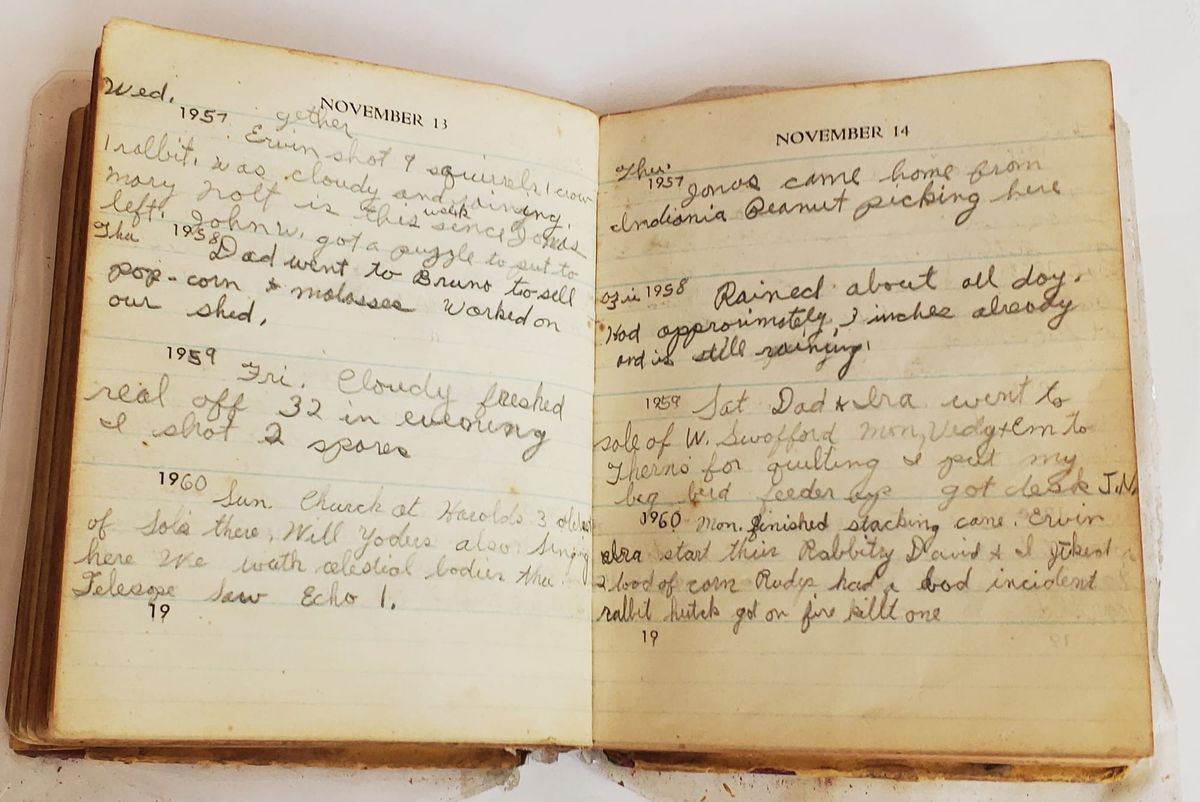 NOVEMBER 13
Wed.
1957 gether
Ervin shot 9 squirrels 1 crow
1 rabbit. was cloudy and raining.
Mary Nolt is this week since Jonas
left. John W. got a puzzle to put to
Thu 1958 Dad went to Bruno to sell
pop-corn & molasses Worked on
our shed.
1959 Fri. Cloudy
real off 32 in evening
I shot 2 spares
1960 Sun. Church at Harolds 3
of Sols there, Will Yoders also Singing
here We watch celestial bodies thu
Telescope Saw Echo 1.
19
NOVEMBER 14
Thu.
1957 Jonas came home from
Indiania Peanut picking here
Fri 1958 Rained about all day.
Had approximately 3 inches already
and is still raining.
1959 Sat Dad & Ira went to
sale of W. Swofford Mom, & Em to
for quilting I put my
big bird feeder up got desk J.N.
1960 Mon. finished stacking cane. Ervin
start their Rabbitry David & I
2 load of corn Rudys had a bad incident
rabbit hutch got on fire killt one
19